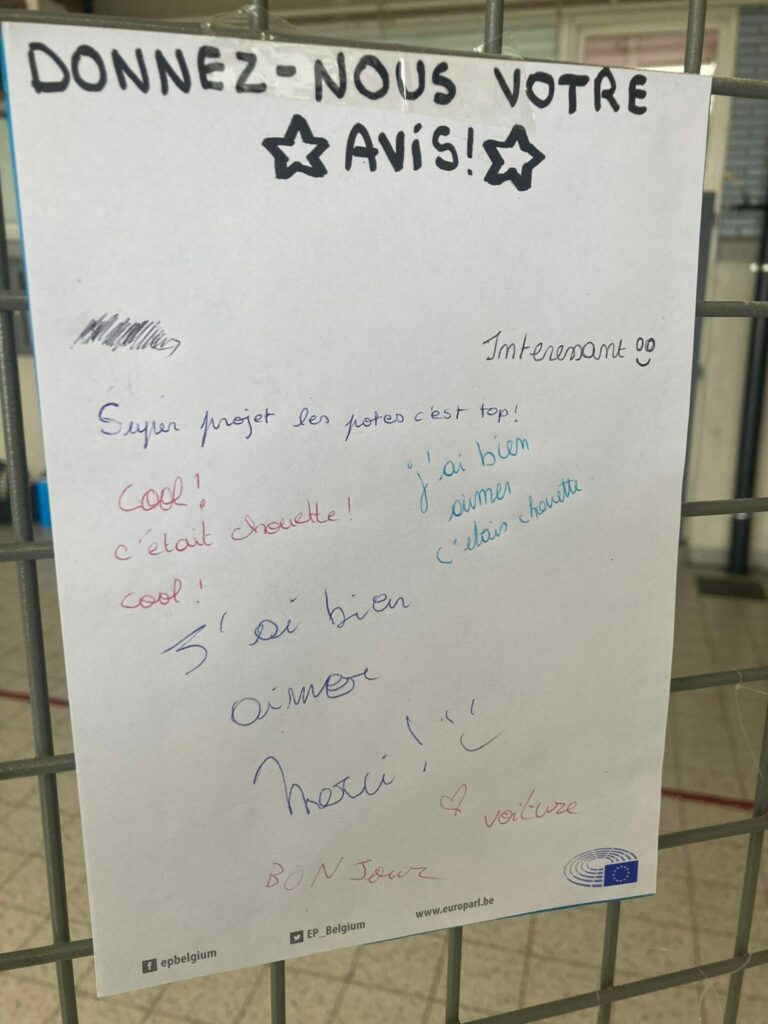 DONNEZ-NOUS VOTRE
AVIS!
Interessant
Super projet les potes c'est top!
cool!
c'était chouette!
cool!
j'ai bien
aimer
c'etais chouette
J'ai bien
aimer
Merci!
voiture
BONJour
www.europarl.be
EP_Belgium
epbelgium